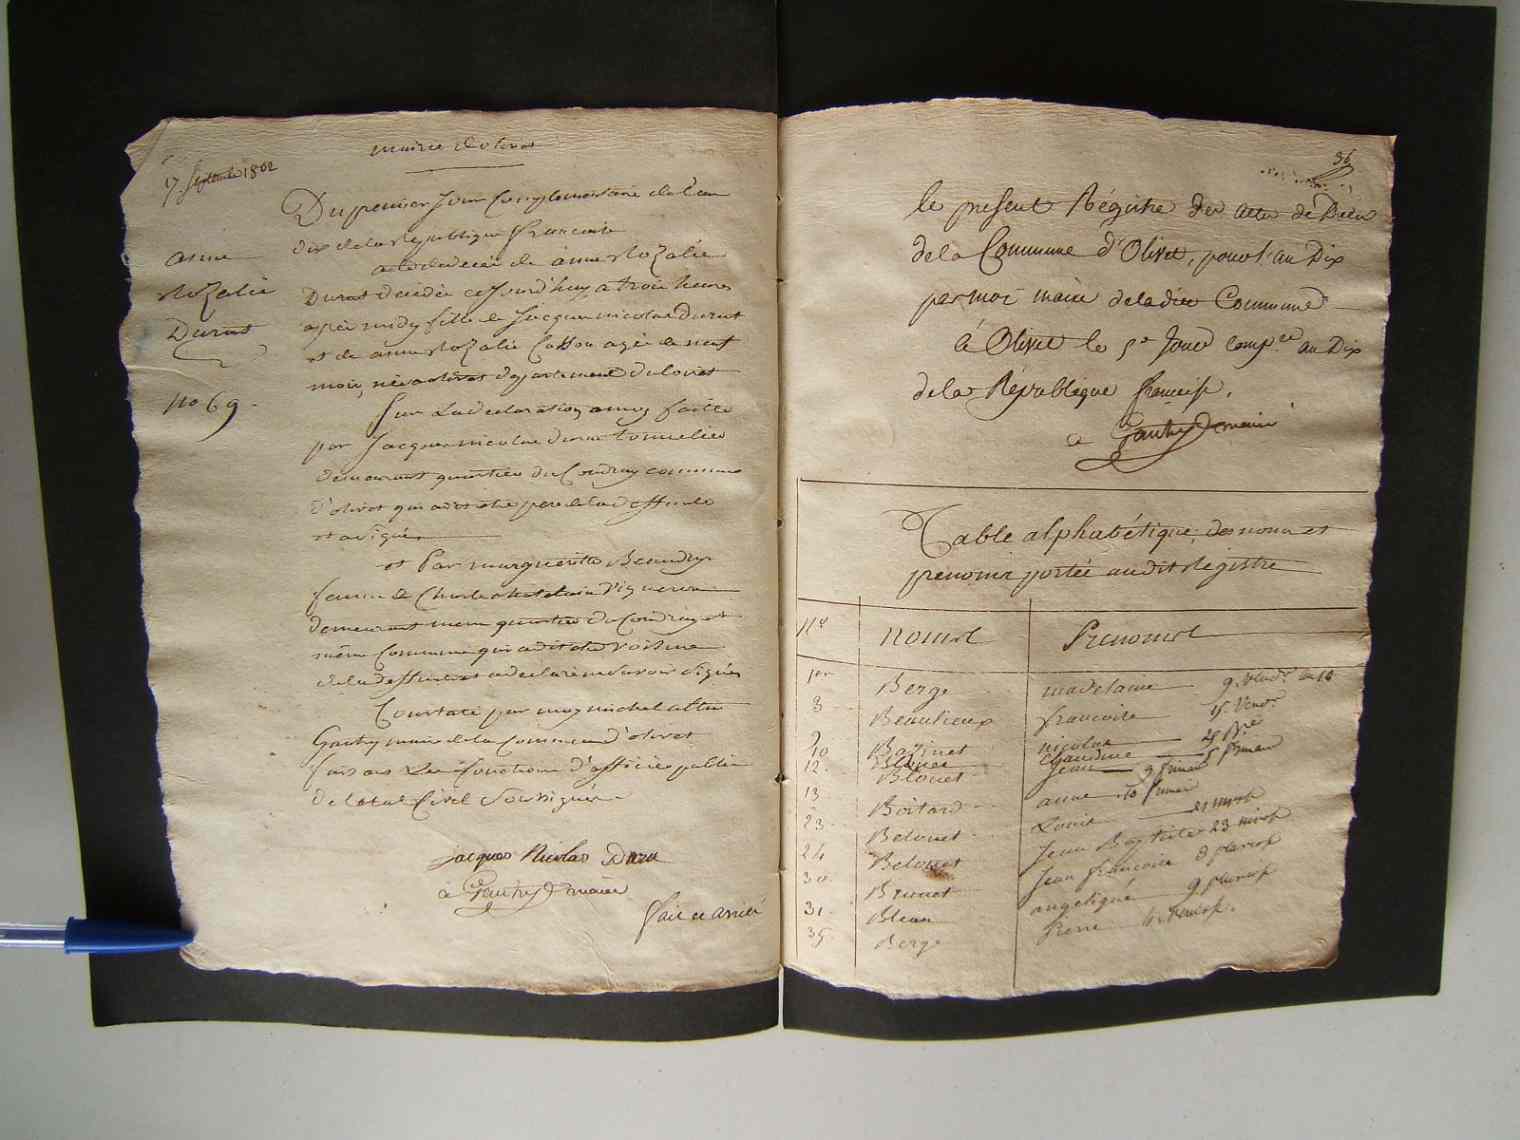 mairie d'olivet
17 Septembre 1802
Du premier Jour Complementaire de l'an
dix de la republique francoise
acte de decée de anne Rozalie
Durut décédée cejourd'huy a trois heures
aprés midy fille de Jacque nicolas Durut
et de anne Rozalie Cotton agée de neuf
mois née a olivet departement du loiret
anne
Rozalie
Durut
No 69.
Sur La declaration a moy faitte
par Jacque nicolas durut tonnelier
demeurant quartier du Coudray commune
d'olivet qui a dit etre pere de la deffunte
et a Signé
et Par marguerite Beaudry
femme de Charle vigneron
demeurant meme quartier du Coudray et
même Commune qui a dit etre voisine
de la deffunte et a declaré ne Savoir Signér
Constaté par moy michel
Gauthy maire de la Commune d'olivet
faisant Les fonctions d'officier public
de l'etat Civil Soussigné
jacques Nicolas Duru
Gauthy maire
fait et arrété
36
le present Régistre des actes de Décès
de la Commune d'Olivet, pour l'an Dix
par moi maire de la dite Commune
à Olivet le 5e Jour comp.re an Dix
de la République francaise.
Gauthy maire
Table alphabétique, des noms et
prenoms portée audit Régistre
Nos Noms Prenoms
1er Berge madelaine 9. vend.re an 10
8 Beaulieux francoise 15. Vend.re
9 Bazinet nicolas
10 Blouet Claudine
12. Blouet Jean
13 Boitard anne 10 frimaire
23 Belouet Louis 21 nivose
24 Belouet Jean Baptiste 23 nivose
30 Brunet Jean francoise 8 pluviose
31. Bleau angelique 9 pluviose
35 Berge Pierre